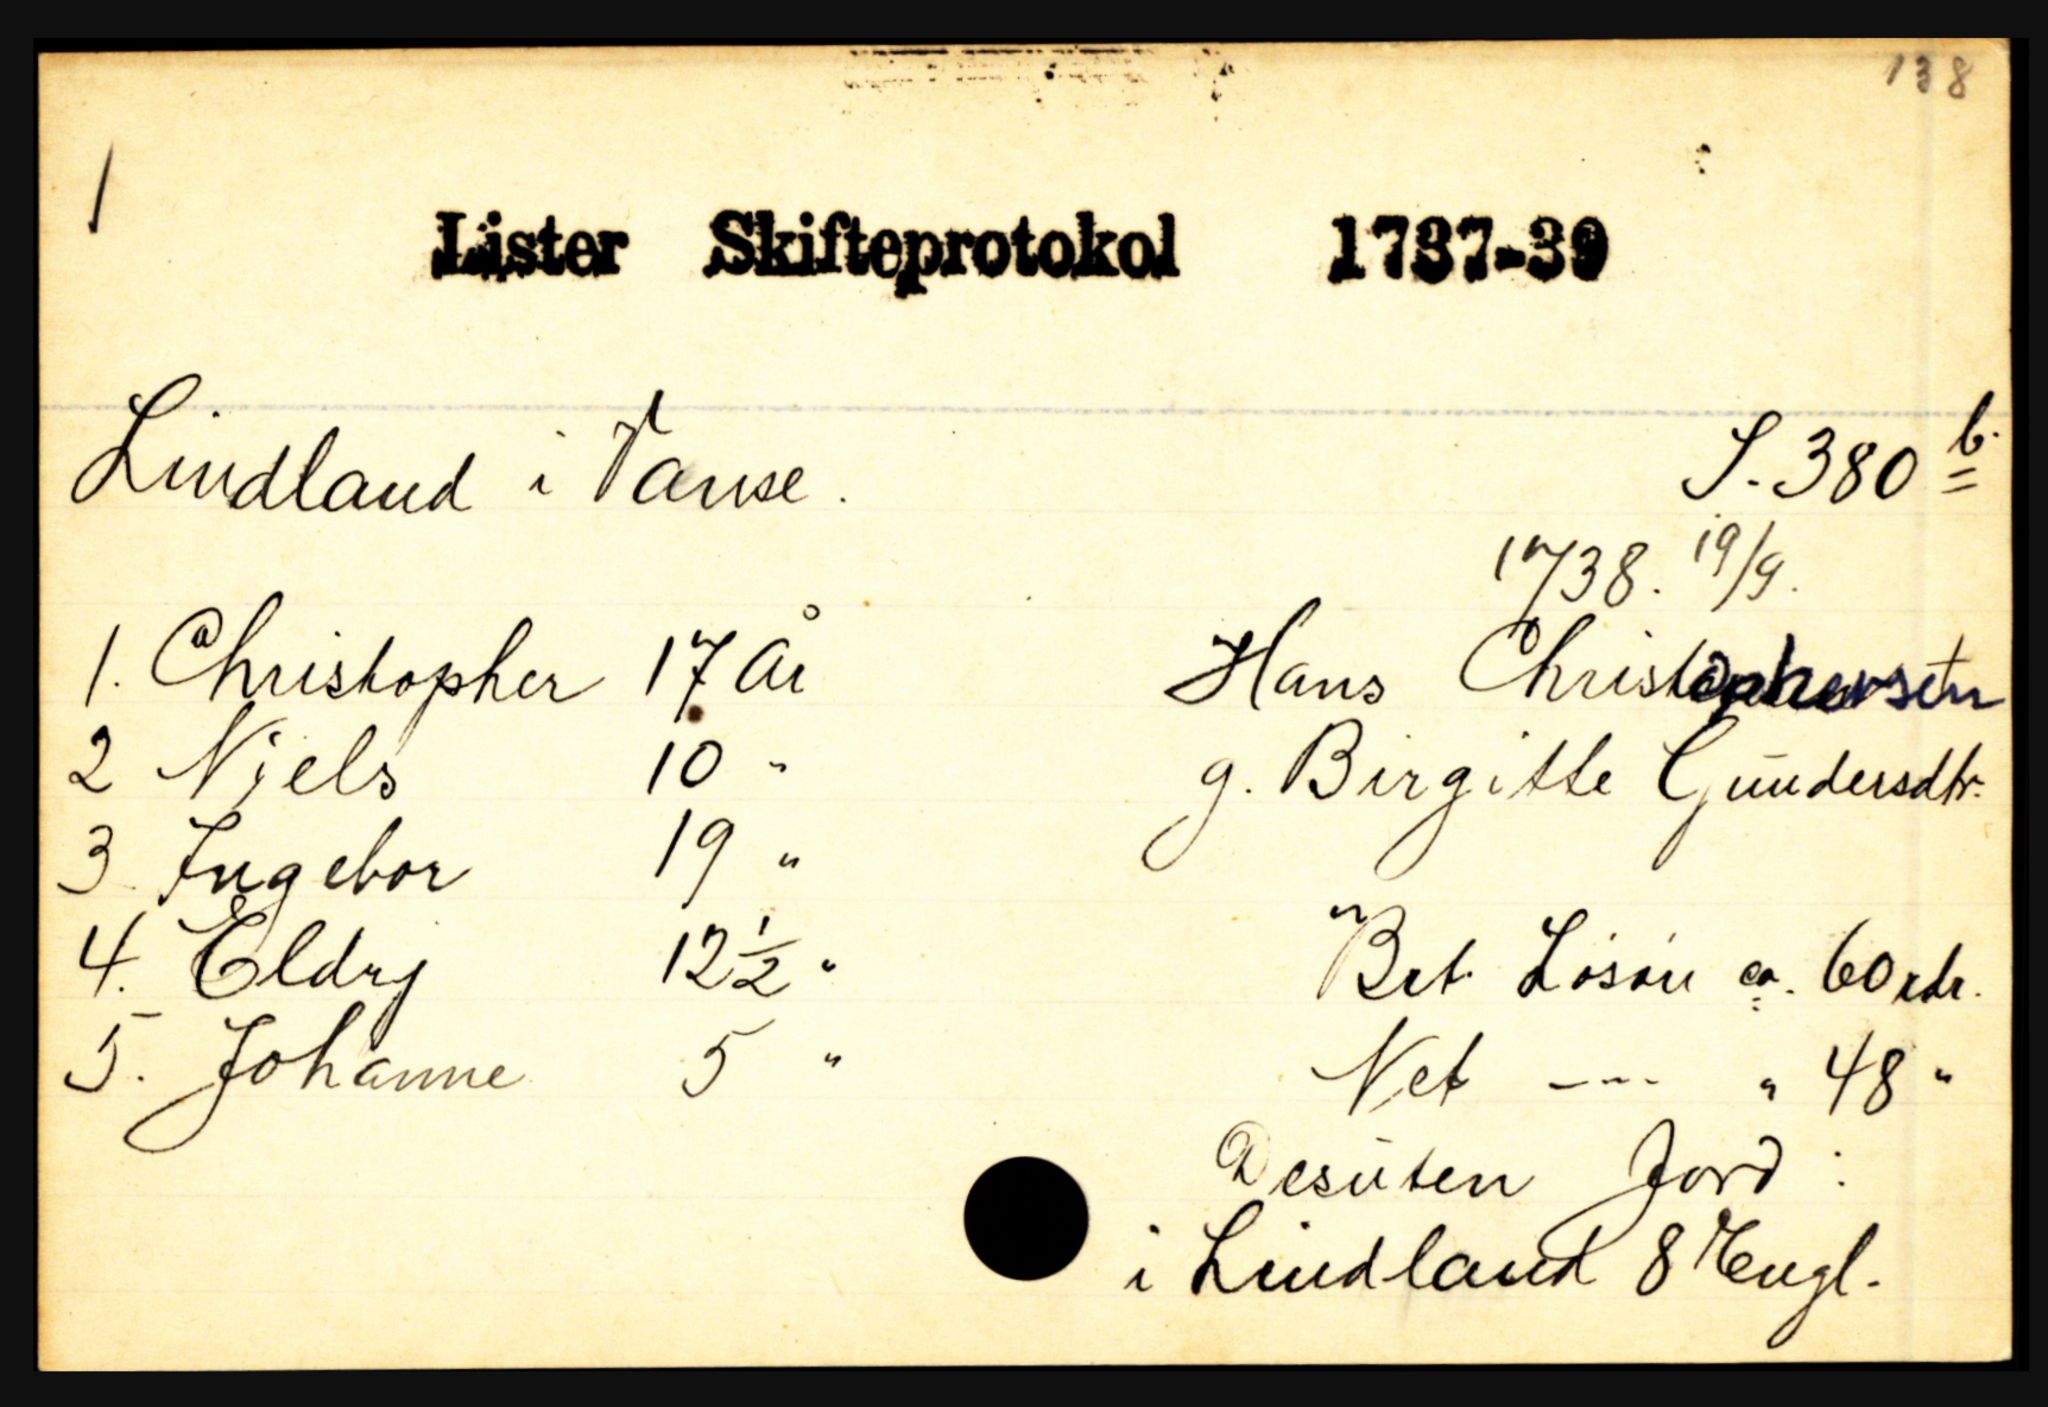 138
1
Lister Skifteprotokol 1737-39
Lindland i Vanse.
S. 380 b.
1738. 19/9.
1. Christopher 17 År
Hans Christophersen
2 Niels 10 "
g. Birgitte Gundersdtr.
3 Ingebor 19 "
4. Eldrj 12 1/2 "
Brt. Løsøu ca. 60 rdr.
5. Johanne 5 "
Net --- " 48 "
Desuten Jord :
i Lindland 8 Engl.